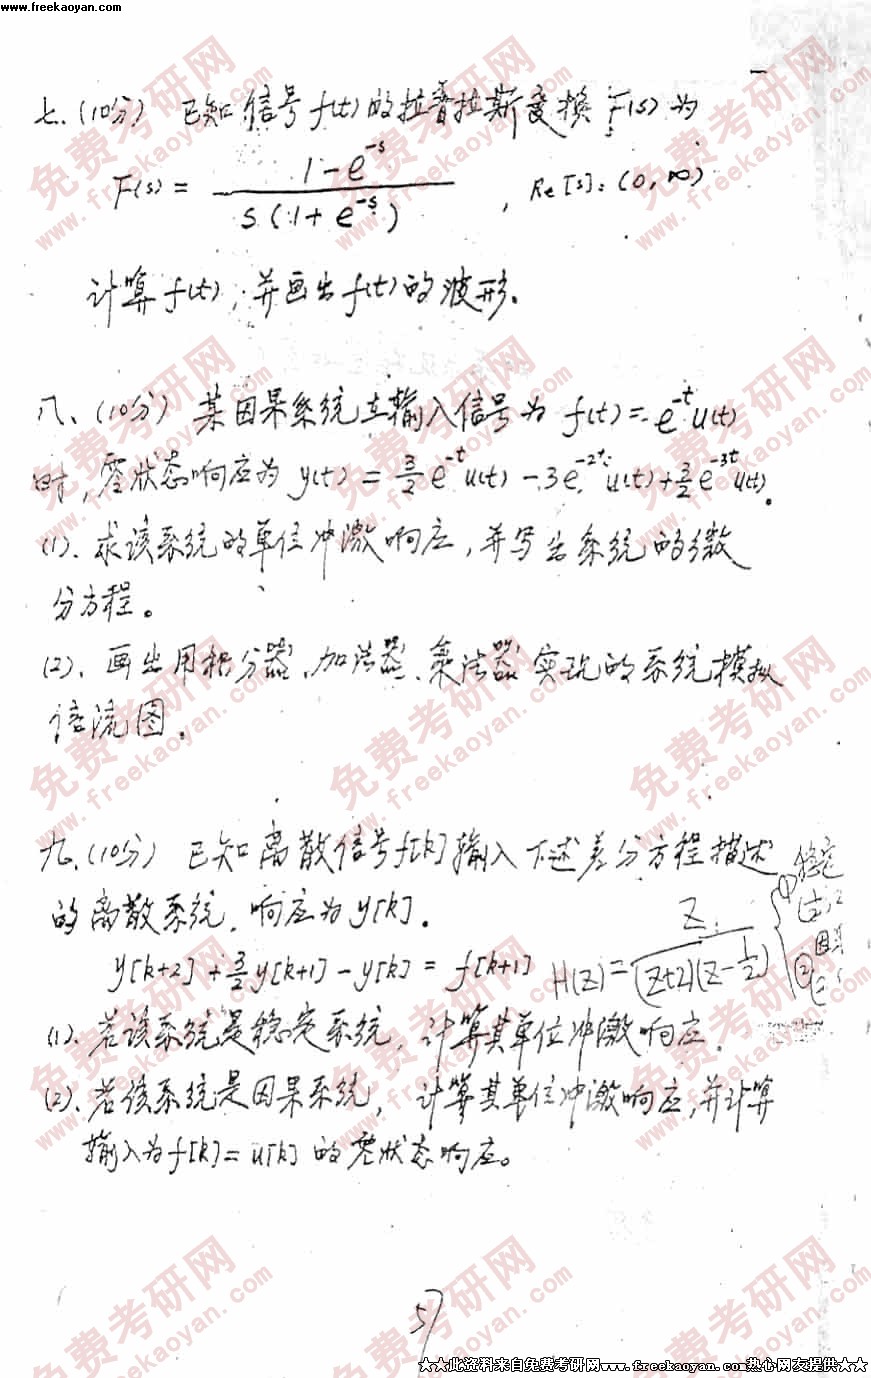 www.freekaoyan.com
七、(10分) 已知信号f(t)的拉普拉斯变换 F(s)为
F(s) = (1-e^{-s}) / (s(1+e^{-s})) , Re[s]: (0, ∞)
计算f(t), 并画出f(t)的波形.
八、(10分) 某因果系统在输入信号为 f(t) = e^{-t}u(t)
时, 零状态响应为 y(t) = 3/2 e^{-t}u(t) - 3e^{-2t}u(t) + 3/2 e^{-3t}u(t).
(1). 求该系统的单位冲激响应, 并写出系统的微
分方程。
(2). 画出用积分器、加法器、乘法器实现的系统模拟
信流图.
九、(10分) 已知离散信号f[k]输入下述差分方程描述
的离散系统, 响应为y[k].
y[k+2] + 3/2 y[k+1] - y[k] = f[k+1]
H(z) = z / ((z+2)(z-1/2))
① 稳定
② 因
(1). 若该系统是稳定系统, 计算其单位冲激响应.
(2). 若该系统是因果系统, 计算其单位冲激响应,并计算
输入为f[k] = u[k] 的零状态响应。
57
★★此资料来自免费考研网www.freekaoyan.com热心网友提供★★
免费考研网
www.freekaoyan.com